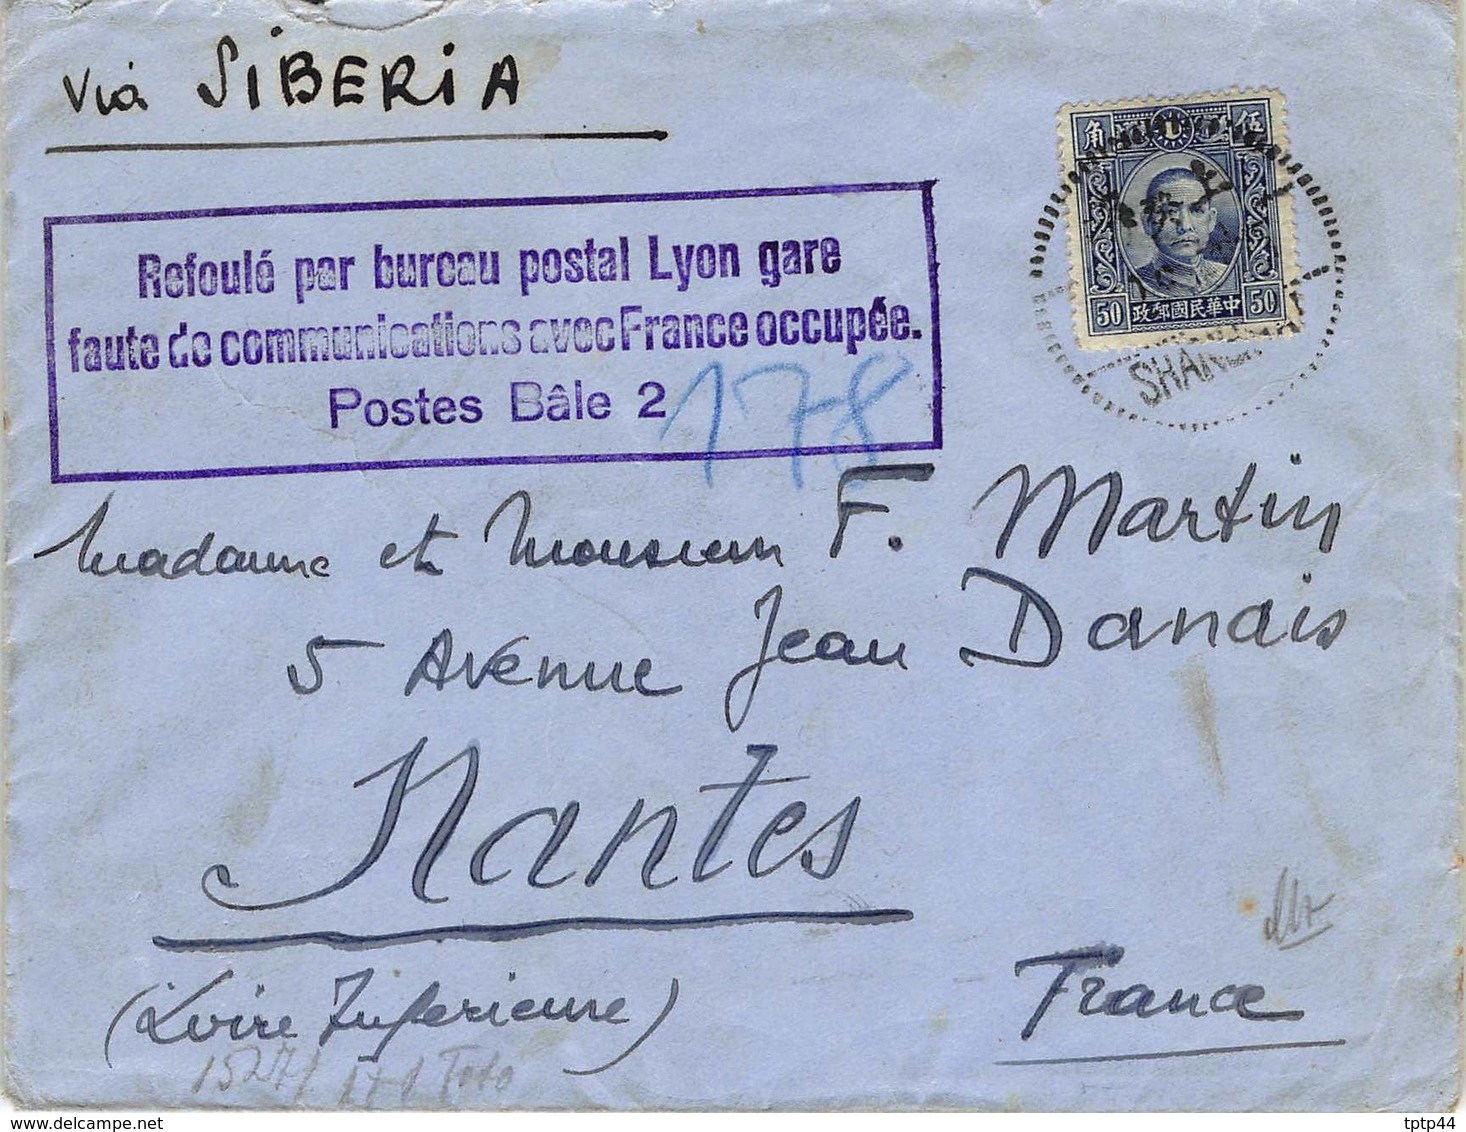 Via SIBERIA
角 伍
50 中華民國郵政 50
SHANGHAI
Refoulé par bureau postal Lyon gare
faute de communications avec France occupée.
Postes Bâle 2
178
Madame et Monsieur F. Martin
5 Avenue Jean Danais
Nantes
(Loire Inferieure)
France
tptp44